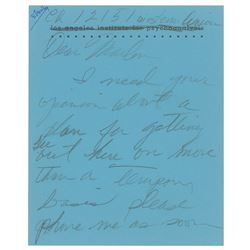 Cr 12151
los angeles institute for psychoanalysis
Dear Marlon
I need your
opinion about a
plan for getting
me out here on more
than a temporary
basis please
phone me as soon